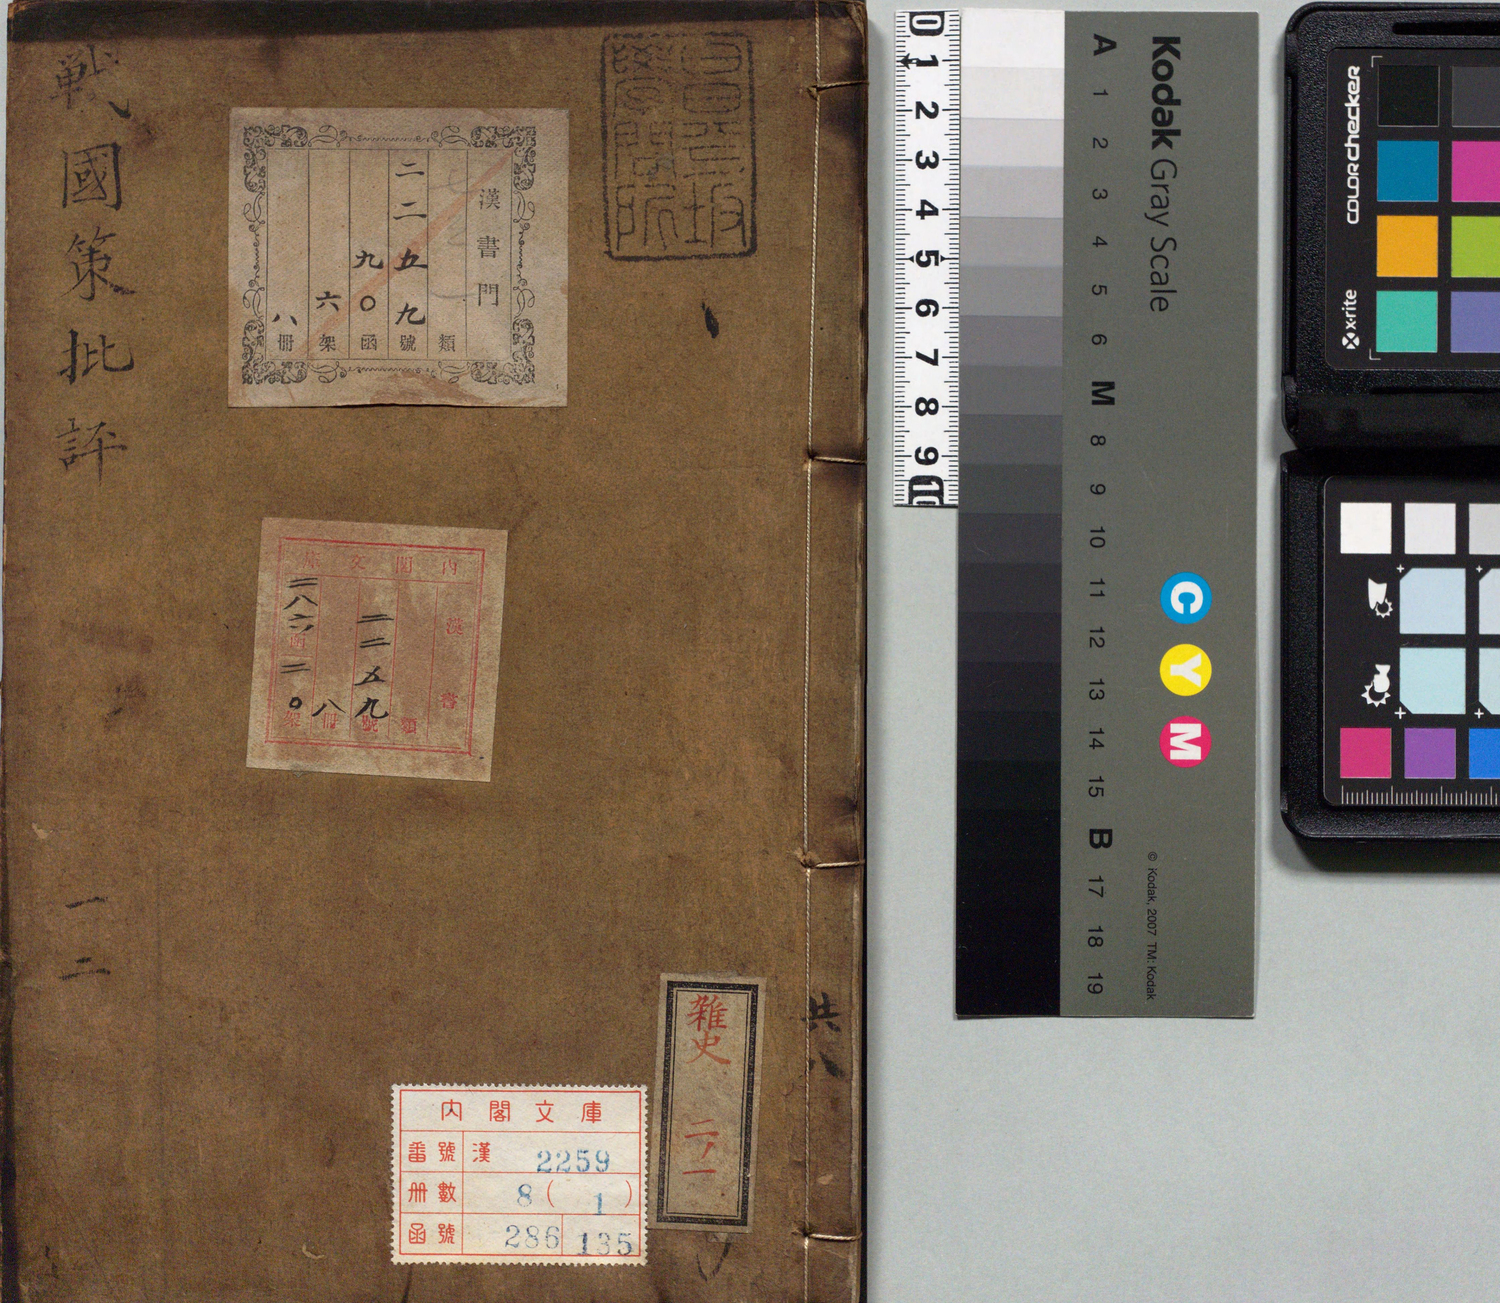 戦國策批評
一二
昌平坂
學問所
漢書門
類
二二五九號
九〇函
六架
八冊
内閣文庫
漢書
類
二二五九號
八冊
二八六函二〇架
雑史
共八
内閣文庫
番號 漢 2259
冊數 8 ( 1 )
函號 286 135
0 1 2 3 4 5 6 7 8 9 10
Kodak Gray Scale
A 1 2 3 4 5 6 M 8 9 10 11 12 13 14 15 B 17 18 19
C Y M
© Kodak, 2007 TM: Kodak
colorchecker
x-rite